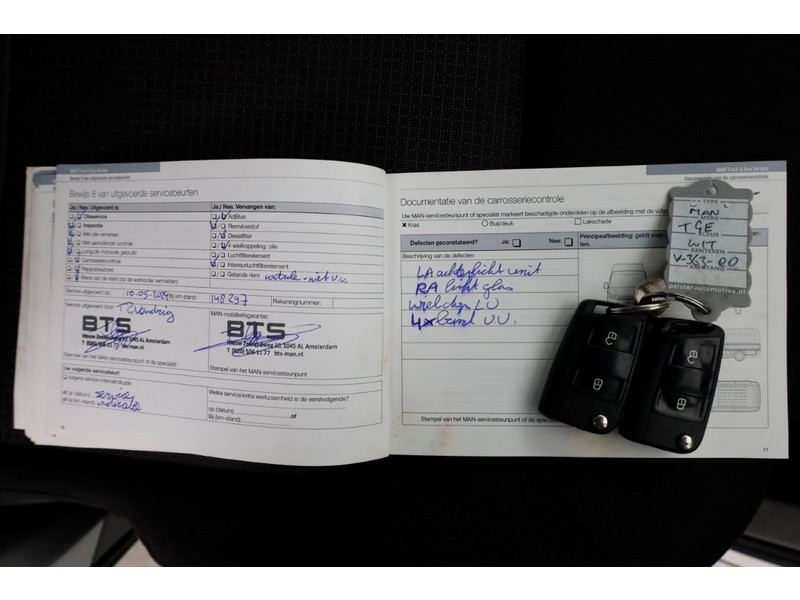 MAN Truck & Bus Service
Bewijs 8 van uitgevoerde servicebeurten
Bewijs 8 van uitgevoerde servicebeurten
Ja / Nee, Uitgevoerd is:
Olieservice
Inspectie
Met olie verversen
Met aanvullende controle
LongLife motorolie gebruikt
Carrosseriecontrole
Reparatieadvies
Ja / Nee, Vervangen van:
AdBlue
Remvloeistof
Dieselfilter
4-wielkoppeling: olie
Luchtfilterelement
Interieurluchtfilterelement
Getande riem controle - niet V.V.
Service uitgevoerd op: 10-05-2024 Bij km-stand: 148297 Rekeningnummer:
Service uitgevoerd door:
MAN-mobiliteitsgarantie:
BTS
Nieuw Zeelandweg 10, 1045 AL Amsterdam
T (020) 506 11 77 bts-man.nl
Stempel van het MAN-servicesteunpunt of de specialist
BTS
Nieuw Zeelandweg 10, 1045 AL Amsterdam
T (020) 506 11 77 bts-man.nl
Stempel van het MAN-servicesteunpunt
Uw volgende servicebeurt
volgens service-intervalindicatie
of op (datum): service
of bij (km-stand): indicatie
Welke service/extra werkzaamheid is de eerstvolgende?
op (datum):
Bij (km-stand): of
16
MAN Truck & Bus Service
Documentatie van de carrosseriecontrole
Documentatie van de carrosseriecontrole
Uw MAN-servicesteunpunt of specialist markeert beschadigde onderdelen op de afbeelding met de volge
Kras
Buil/deuk
Lakschade
Defecten geconstateerd? Ja: Nee:
Principeafbeelding: geldt voor
ten.
Beschrijving van de defecten:
LA achterlicht unit
RA licht glas
wieldop LV
4x band V.V.
Stempel van het MAN-servicesteunpunt of de specialist voor carrosserie
17
MAN
TYPE
TGE
KLEUR
WIT
KENTEKEN
V-363-
KMSTAND
pelsterautomotive.nl